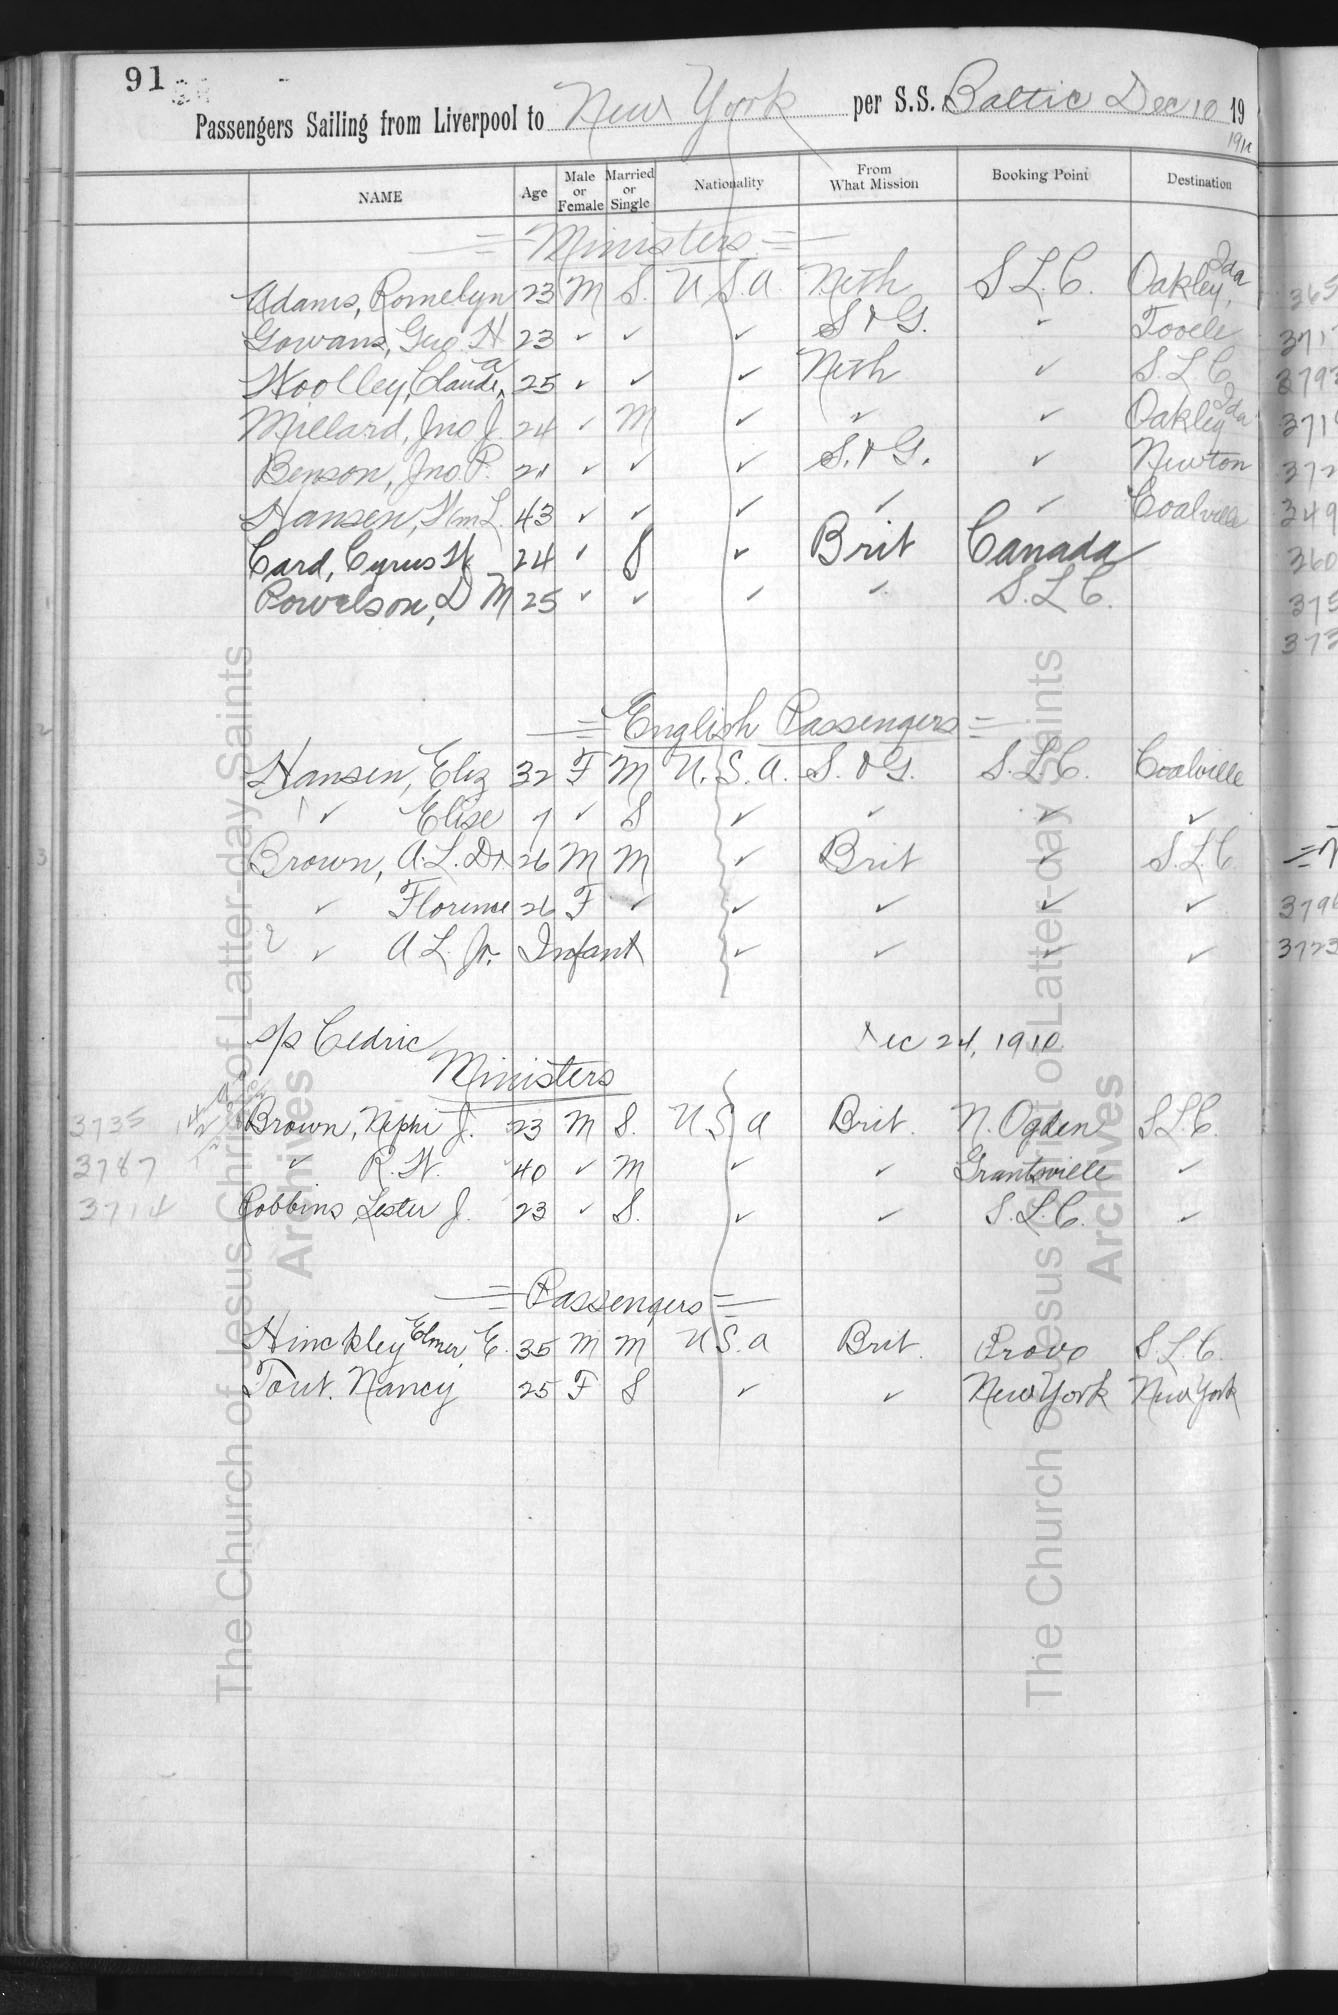 91
Passengers Sailing from Liverpool to New York per S.S. Baltic Dec 10 19
1910
NAME Age Male or Female Married or Single Nationality From What Mission Booking Point Destination
Ministers
Adams, Romelyn 23 M S. U.S.A. Neth S.L.C. Oakley, Ida
Gowans, Geo. H 23 ✓ ✓ ✓ S & G. ✓ Tooele
Woolley, Claude A 25 ✓ ✓ ✓ Neth ✓ S.L.C.
Millard, Jno J. 24 ✓ M ✓ ✓ ✓ Oakley Ida
Benson, Jno. P. 21 ✓ ✓ ✓ S. & G. ✓ Newton
Hansen, Wm L. 43 ✓ ✓ ✓ ✓ ✓ Coalville
Card, Cyrus W 24 ✓ S ✓ Brit Canada
Powelson, D M 25 ✓ ✓ ✓ ✓ S.L.C.
English Passengers
Hansen, Eliz 32 F M U.S.A. S. & G. S.L.C. Coalville
✓ Elise 7 ✓ S ✓ ✓ ✓ ✓
Brown, A.L. Dr. 26 M M ✓ Brit ✓ S.L.C.
✓ Florence 26 F ✓ ✓ ✓ ✓ ✓
✓ A L. Jr. Infant ✓ ✓ ✓ ✓
s/s Cedric Dec 24, 1910.
Ministers
3735 Brown, Nephi J. 23 M S. U S A Brit. N. Ogden S.L.C.
3787 ✓ R.W. 40 ✓ M ✓ ✓ Grantsville ✓
3714 Robbins, Lester J. 23 ✓ S. ✓ ✓ S.L.C. ✓
Passengers
Hinckley Elmer E. 35 M M U.S.A Brit. Provo S.L.C.
Tout. Nancy 25 F S ✓ ✓ New York New York
The Church of Jesus Christ of Latter-day Saints
Archives
The Church of Jesus Christ of Latter-day Saints
Archives